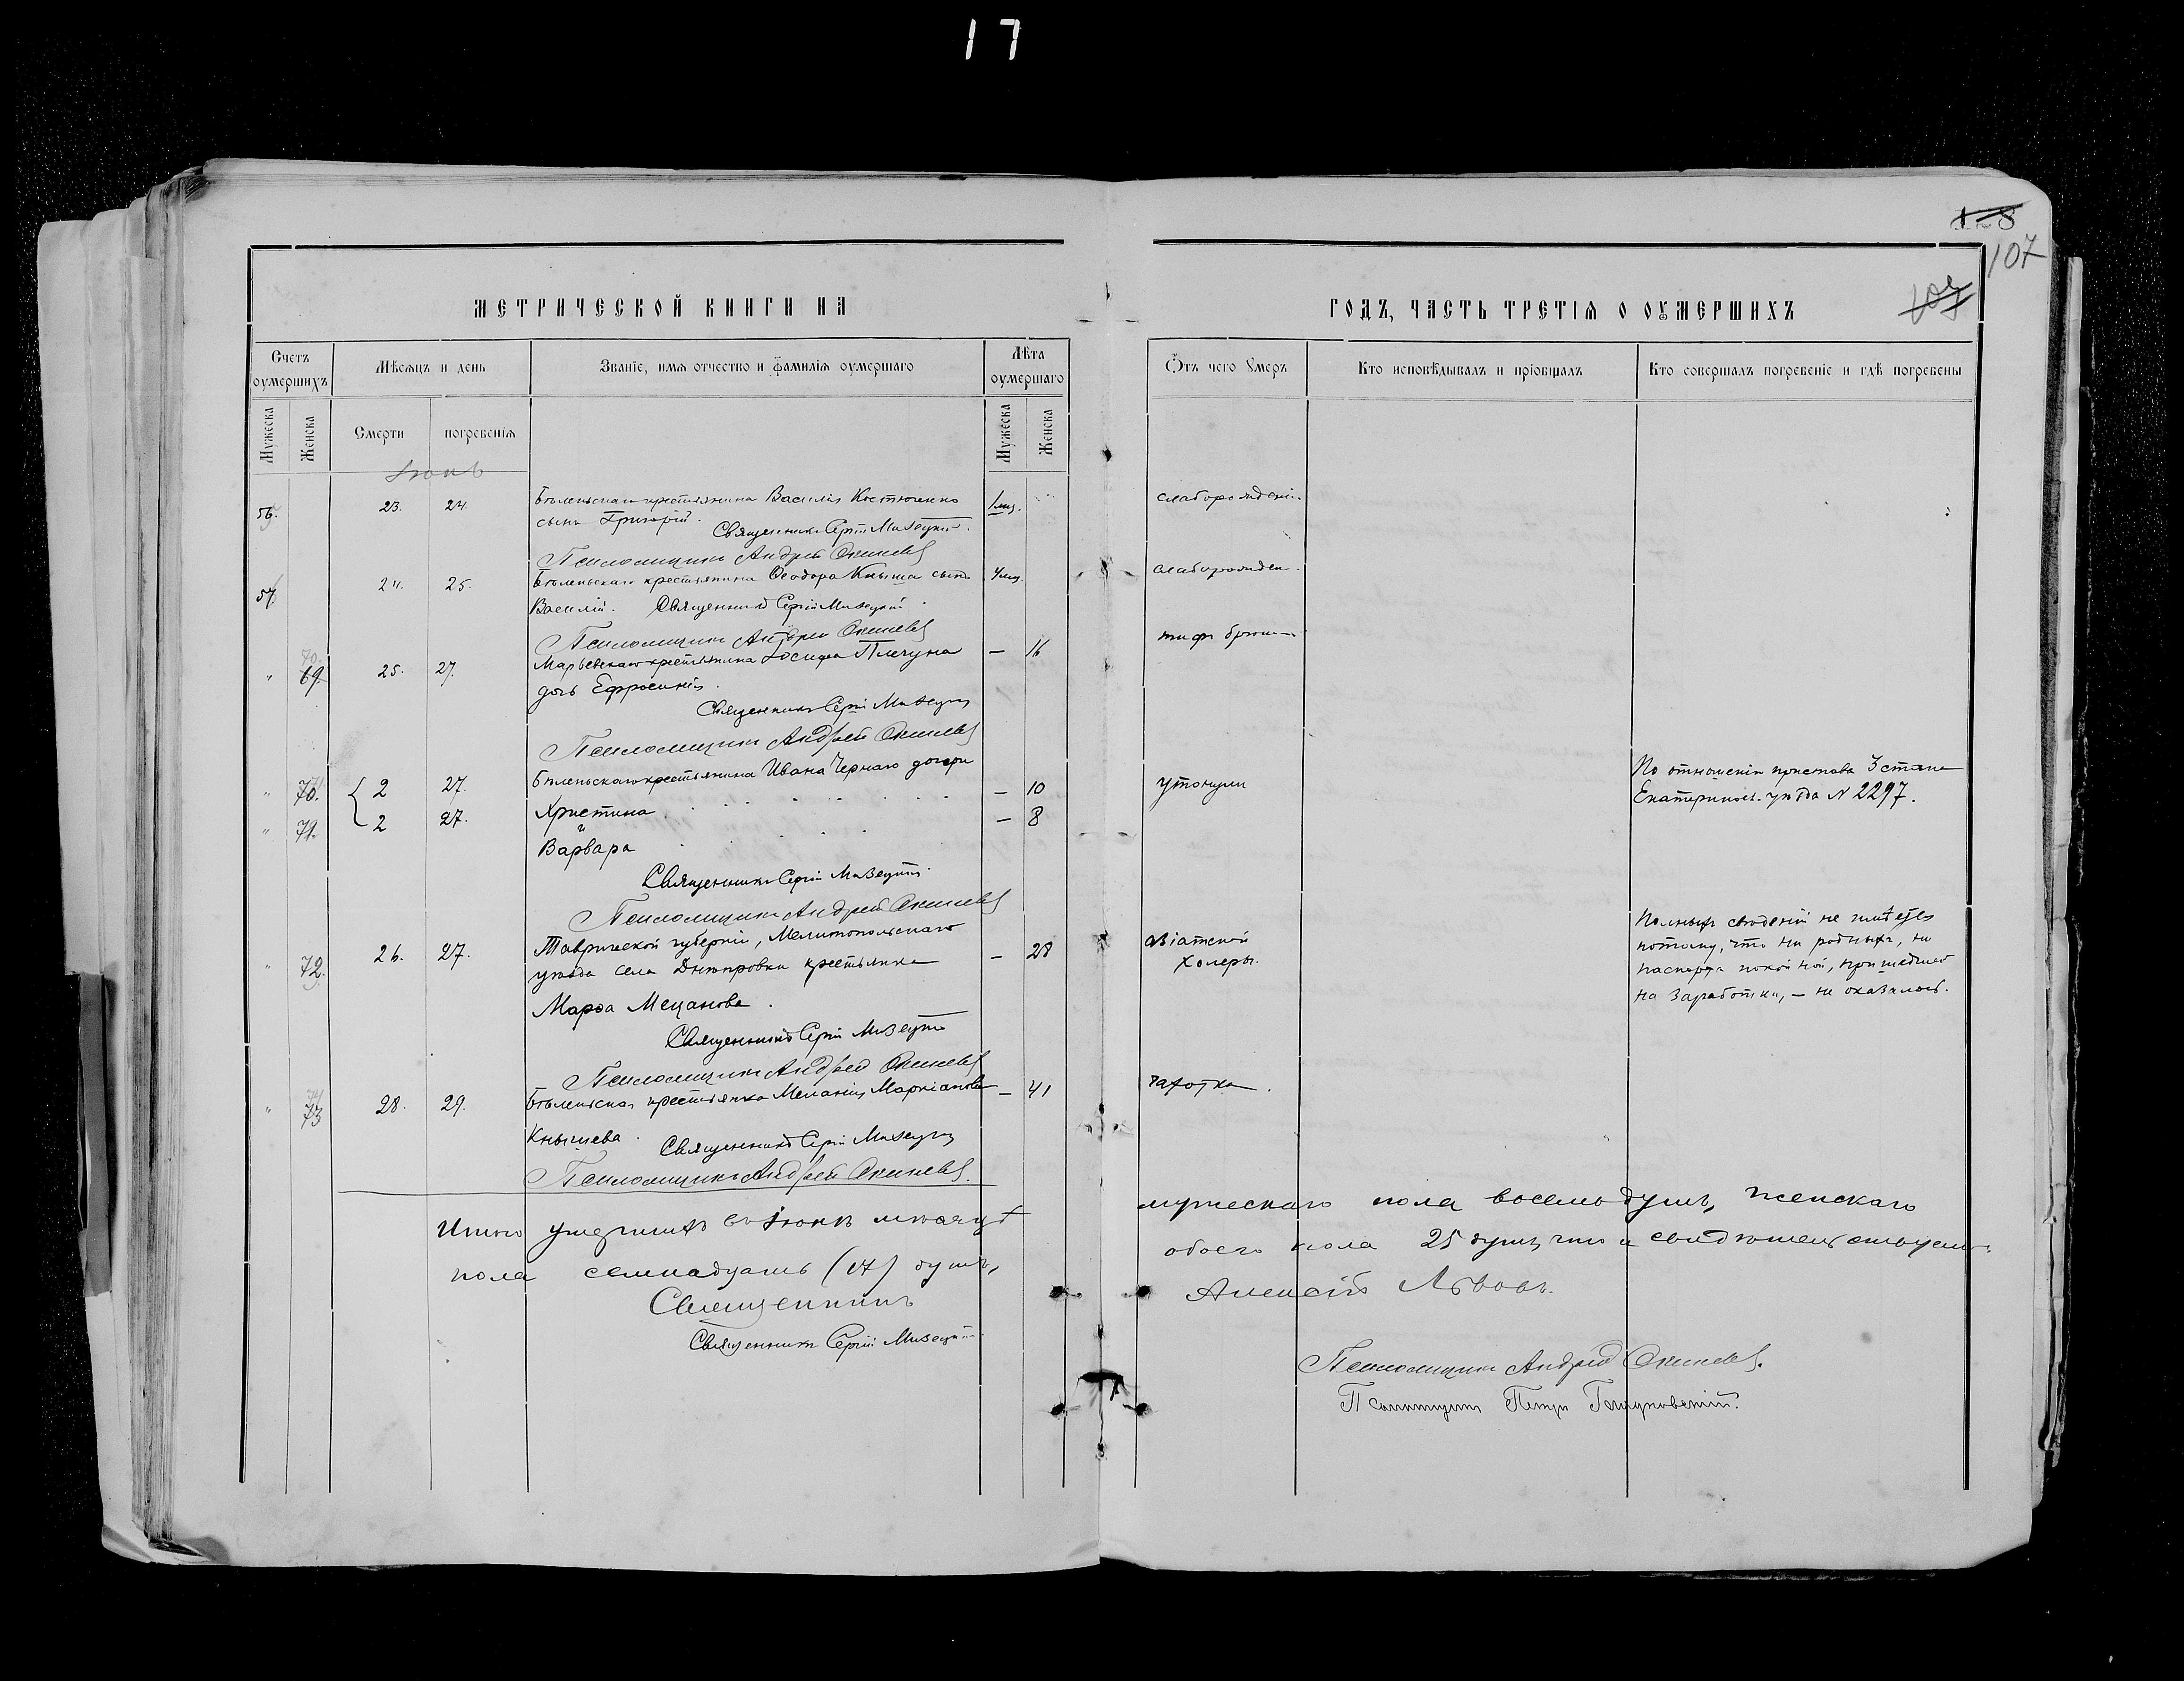 17
128
107
107
МЕТРИЧЕСКОЙ КНИГИ НА
ГОДЪ, ЧАСТЬ ТРЕТІѦ О ОУМЕРШИХЪ
Счетъ оумершихъ
Мѣсяцъ и день
Званіе, имѧ отчество и фамиліѧ оумершаго
Лѣта оумершаго
Ѿтъ чего Умеръ
Кто исповѣдывалъ и пріобщалъ
Кто совершалъ погребеніе и гдѣ погребены
Мужеска
Женска
Смерти
погребеніѧ
Мужеска
Женска
Іюнь
56. 23. 24. Бѣленьскаго крестьянина Василія Костюченко 1 мѣс. слаборожденіе
сынъ Григорій.
Священникъ Сергій Мизецкій.
Псаломщикъ Андрей
57. 24. 25. Бѣленьскаго крестьянина Ѳеодора Кныша сынъ 4 мѣс. слаборожден.
Василій. Священникъ Сергій Мизецкій.
Псаломщикъ Андрей
70.
" 69. 25. 27. Марьевскаго крестьянина Іосифа Плечуна — 16 тифъ брюшн.
дочь Ефросинія.
Священникъ Сергій Мизецкій
Псаломщикъ Андрей
" 70. 2 27. Бѣленьскаго крестьянина Ивана Чернаго дочери — 10 утонули По отношенію пристава 3 стана
Екатеринос. уѣзда N 2297.
" 71. 2 27. Христина — 8
и
Варвара
Священникъ Сергій Мизецкій.
Псаломщикъ Андрей
" 72. 26. 27. Таврической губерніи, Мелитопольскаго — 28 азіатской Полныхъ свѣдѣній не имѣется
уѣзда села Днѣпровки крестьянка холеры. потому, что ни родныхъ, ни
Марѳа Мецанова. паспорта покойной, пришедшей
на заработки, — не оказалось.
Священникъ Сергій Мизецкій
Псаломщикъ Андрей
74
" 73 28. 29. Бѣленьская крестьянка Меланія Маркіанова — 41 чахотка.
Кнышева. Священникъ Сергій Мизецкій
Псаломщикъ Андрей
Итого умершихъ въ Іюнѣ мѣсяцѣ мужескаго пола восемь душъ, женскаго
пола семнадцать (17) душъ, обоего пола 25 душъ, что и свидѣтельствуемъ.
Священникъ Алексій Львовъ.
Священникъ Сергій Мизецкій
Псаломщикъ Андрей
Псаломщикъ Петръ